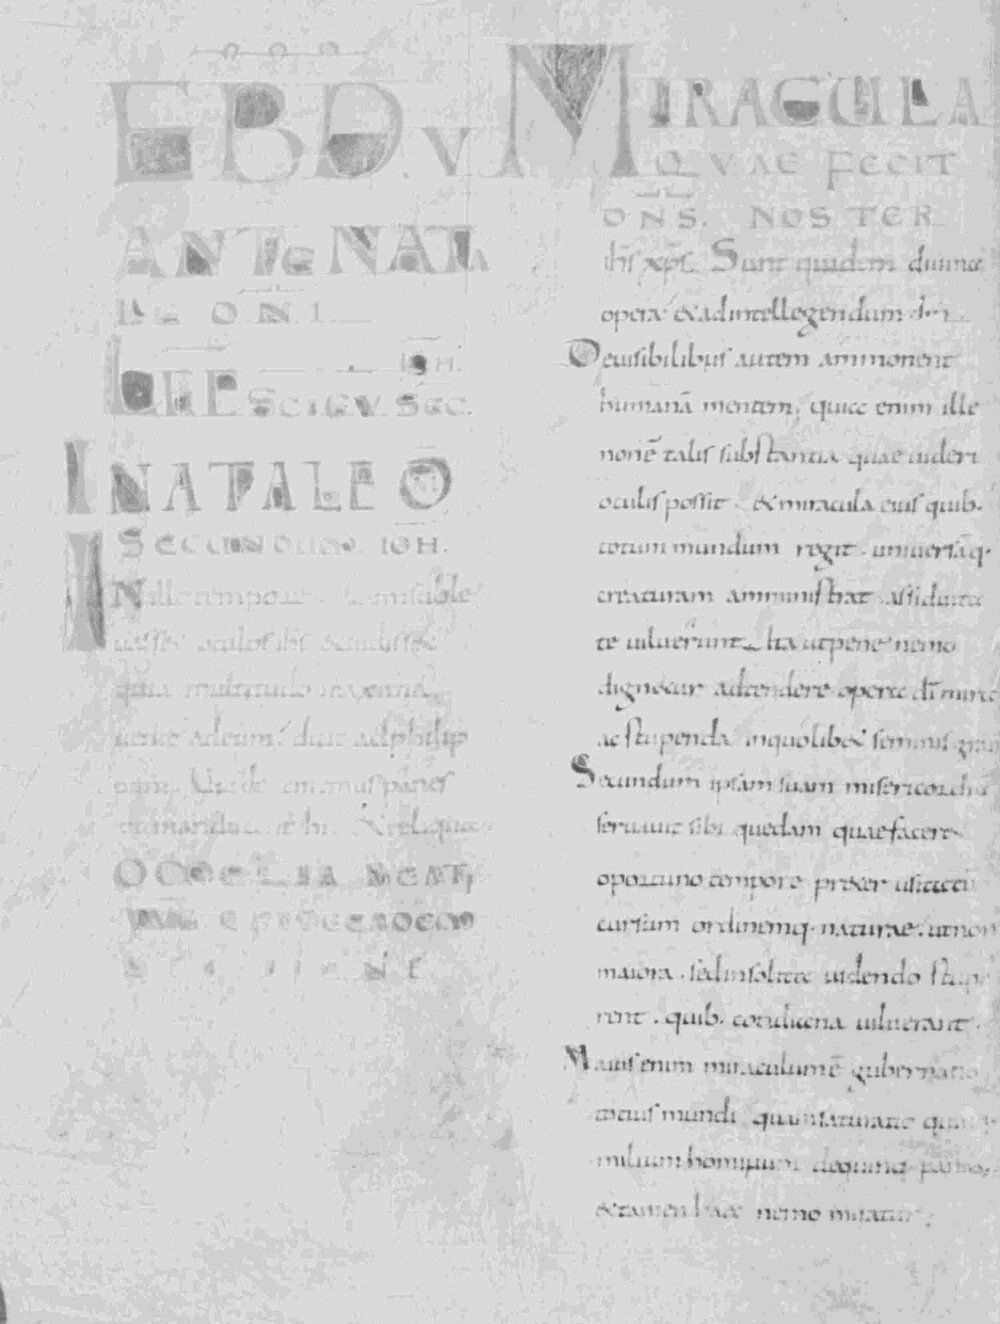 EBD. V
ANTE NAT
DE DNI
LEC SCI EV SEC. IOH.
IN NATALE D
SECUNDUM IOH.
In illo tempore
uasset oculos ihs & uidisset
quia multitudo maxima
uenit adeum, dicit adphilip
pum. Unde ememus panes
& reliqua
OMELIA BEATI
MIRACULA
QVAE FECIT
DNS. NOSTER
ihs xps. Sunt quidem diuina
opera & adintellegendum dm
Deuisibilibus autem ammonent
humanā mentem, quia enim ille
nonē talis substantia quae uideri
oculis possit & miracula eius quib.
totum mundum regit. uniuersāq.
creaturam amministrat assiduita
te uiluerunt Ita ut pene nemo
dignetur adtendere opera dī mira
ac stupenda inquolib& seminis grano
Secundum ipsam suam misericordiā
seruauit sibi quedam quae faceret
oportuno tempore pr&er usitatū
cursum ordinemq. naturae. ut non
maiora. sed insolita uidendo stupe
rent. quib. cotidiana uiluerant.
Maius enim miraculum ē gubernatio
totius mundi quam saturatio quinq.
milium hominum dequinq. panib.
& tamen haec nemo miratur;